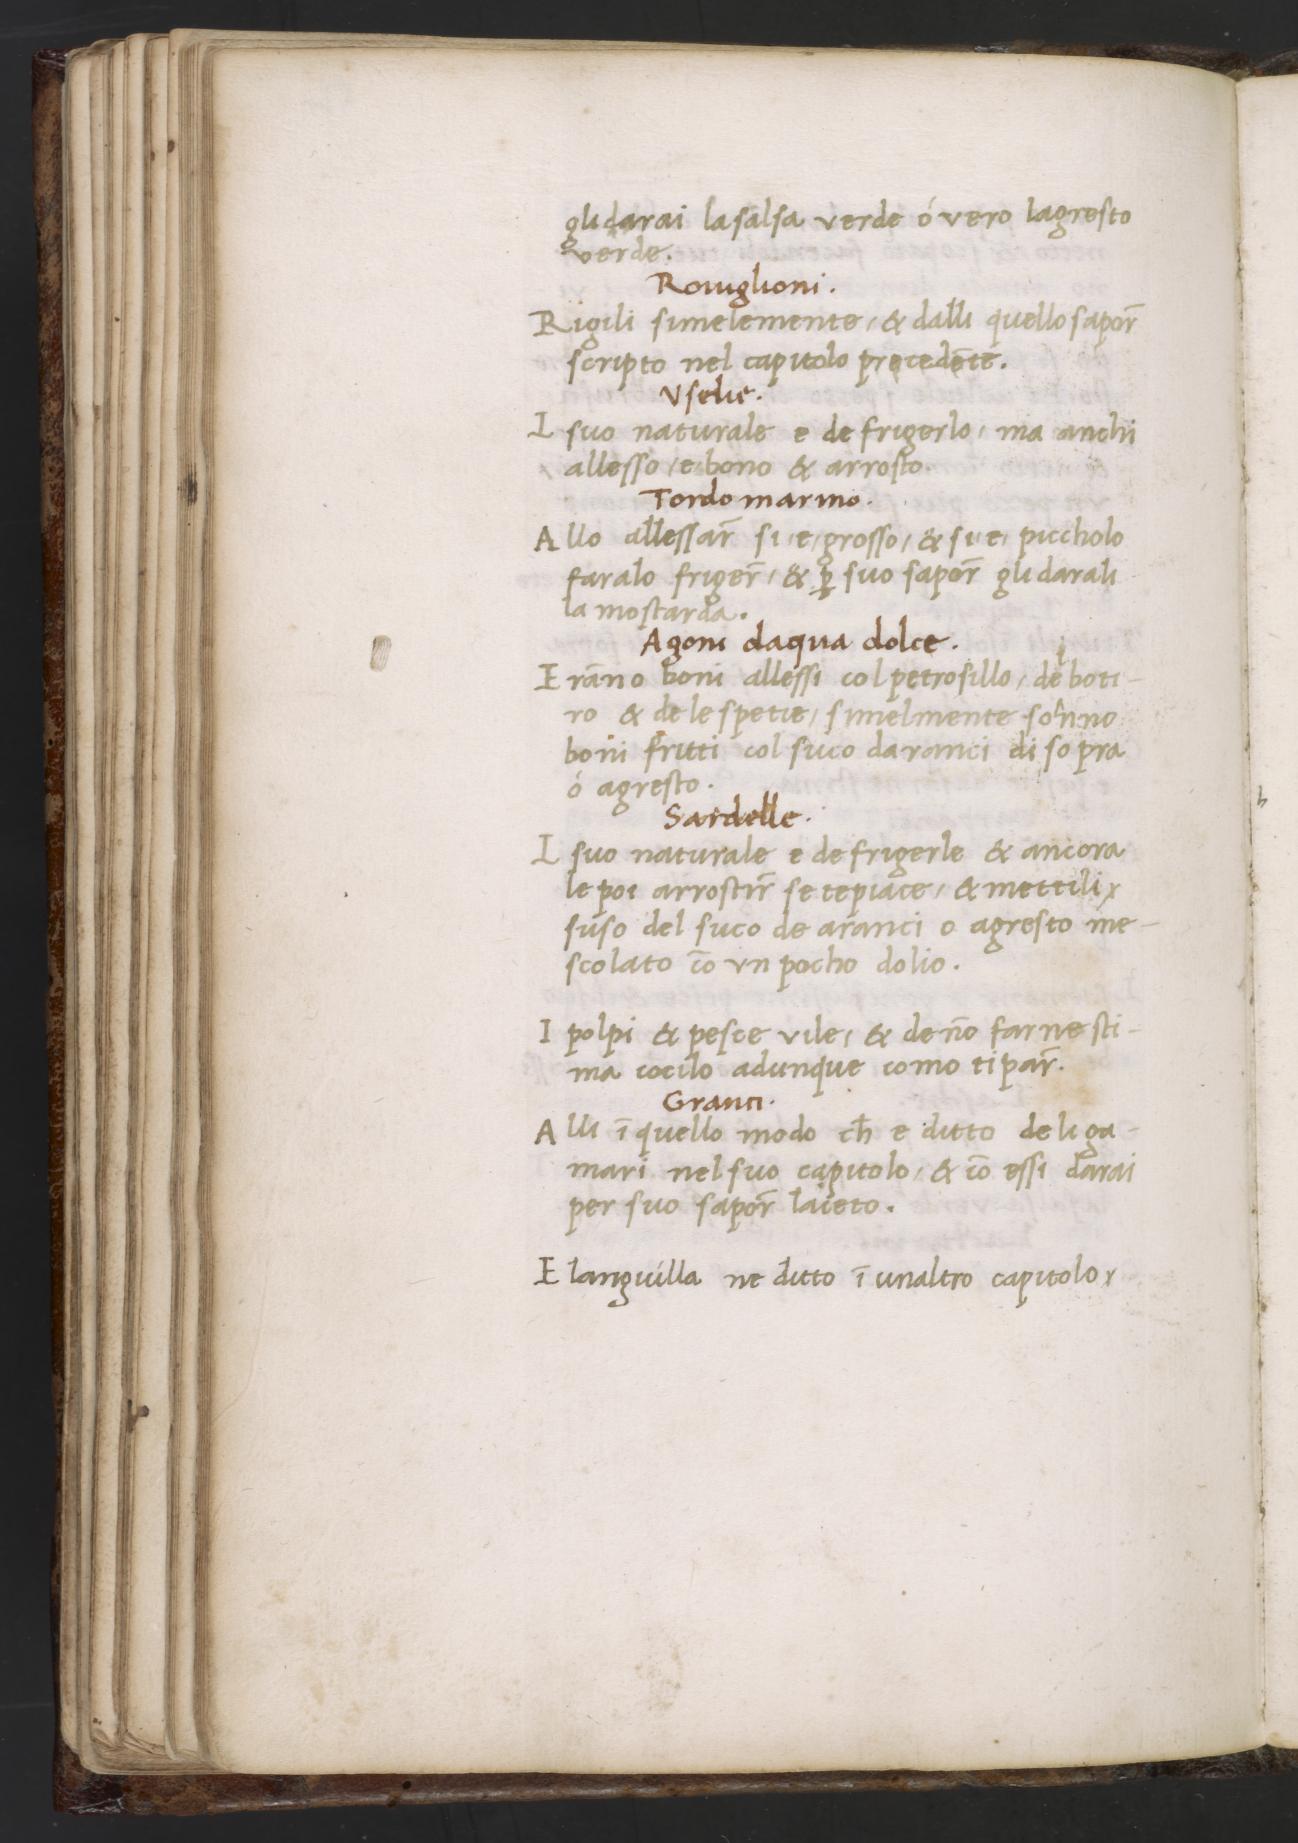 gli darai la salsa verde ó vero lagresto
verde.
Rouiglioni.
Rigili simelemente, & dalli quello sapor̄
scripto nel capitolo precedēte.
Vselie.
I suo naturale e de frigerlo, ma anchi
allesso, e, bono & arrosto.
Tordo marino.
Allo allessar̄ si, e, grosso, & si, e, piccholo
faralo friger̄, & ꝑ suo sapor̄ gli darali
la mostarda.
Agoni daqua dolce.
Erāno boni allessi col petrosillo, de boti-
ro & de le spetie, simelmente sonno
boni fritti col suco daranci di sopra
ó agresto.
Sardelle.
I suo naturale e de frigerle & ancora
le poi arrostir̄ se te piace, & mettili
suso del suco de aranci o agresto me-
scolato cō vn pocho dolio.
I polpi & pesce vile, & de nō farne sti-
ma cocilo adunque como ti par̄.
Granci.
Alli ī quello modo ch̄ e ditto de li ga-
mari nel suo capitolo, & cō essi darai
per suo sapor̄ laceto.
E languilla ne ditto ī unaltro capitolo